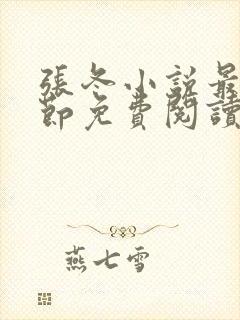 張冬小說最
節免費閱讀
燕七雪